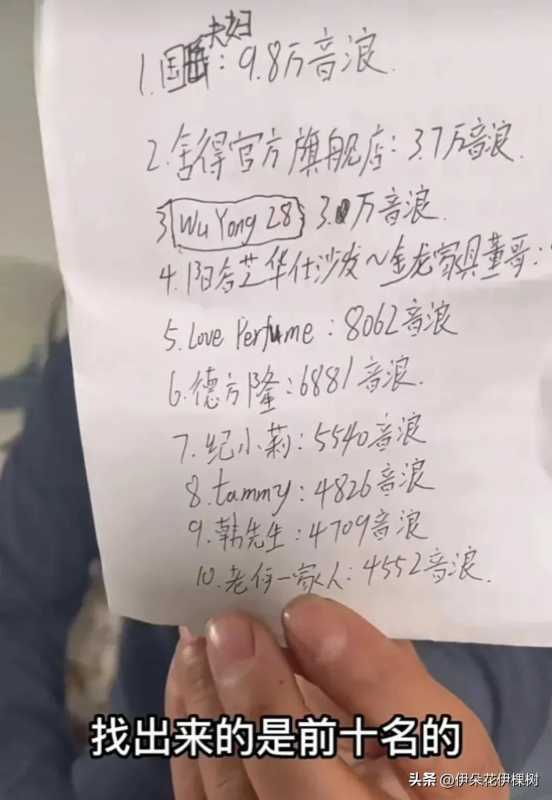 夫妇
1.国岳:9.8万音浪.
2.舍得官方旗舰店:3.7万音浪.
3 Wu Yong 28 3.0万音浪.
4.阳谷芝华仕沙发~金龙家具董哥:
5.Love Perfume:8062音浪
6.德方隆:6881音浪.
7.纪小莉:5540音浪
8.tammy:4826音浪
9.韩先生:4709音浪
10.老何一家人:4552音浪.
找出来的是前十名的
头条 @伊朵花伊棵树